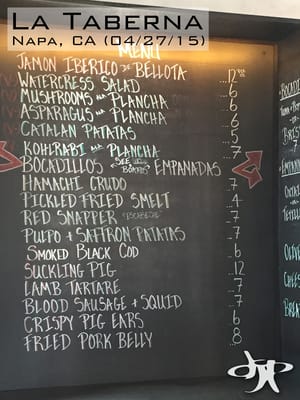 La Taberna
Napa, CA (04/27/15)
MENU
JAMON IBERICO DE BELLOTA ...12
WATERCRESS SALAD ...6
MUSHROOMS a la PLANCHA ...6
ASPARAGUS a la PLANCHA ...6
CATALAN PATATAS ...5
KOHLRABI a la PLANCHA ...7
BOCADILLOS SEE BOARDS EMPANADAS
HAMACHI CRUDO ...7
PICKLED FRIED SMELT ...4
RED SNAPPER "ESCABECHE" ...7
PULPO + SAFFRON PATATAS ...7
SMOKED BLACK COD ...6
SUCKLING PIG ...12
LAMB TARTARE ...7
BLOOD SAUSAGE + SQUID ...7
CRISPY PIG EARS ...6
FRIED PORK BELLY ...8